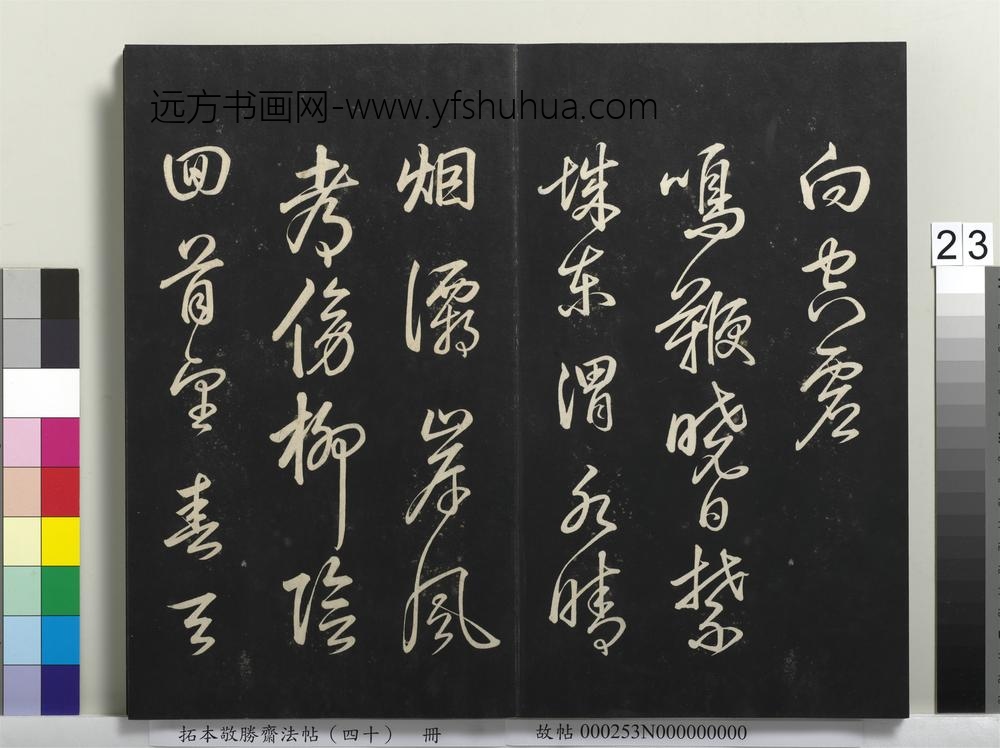 远方书画网-www.yfshuhua.com
向空虚
鸣鞭晓日禁
城东渭水晴
烟灞岸风
都傍柳阴
回首望春天
23
拓本敬勝齋法帖（四十） 冊
故帖 000253N000000000